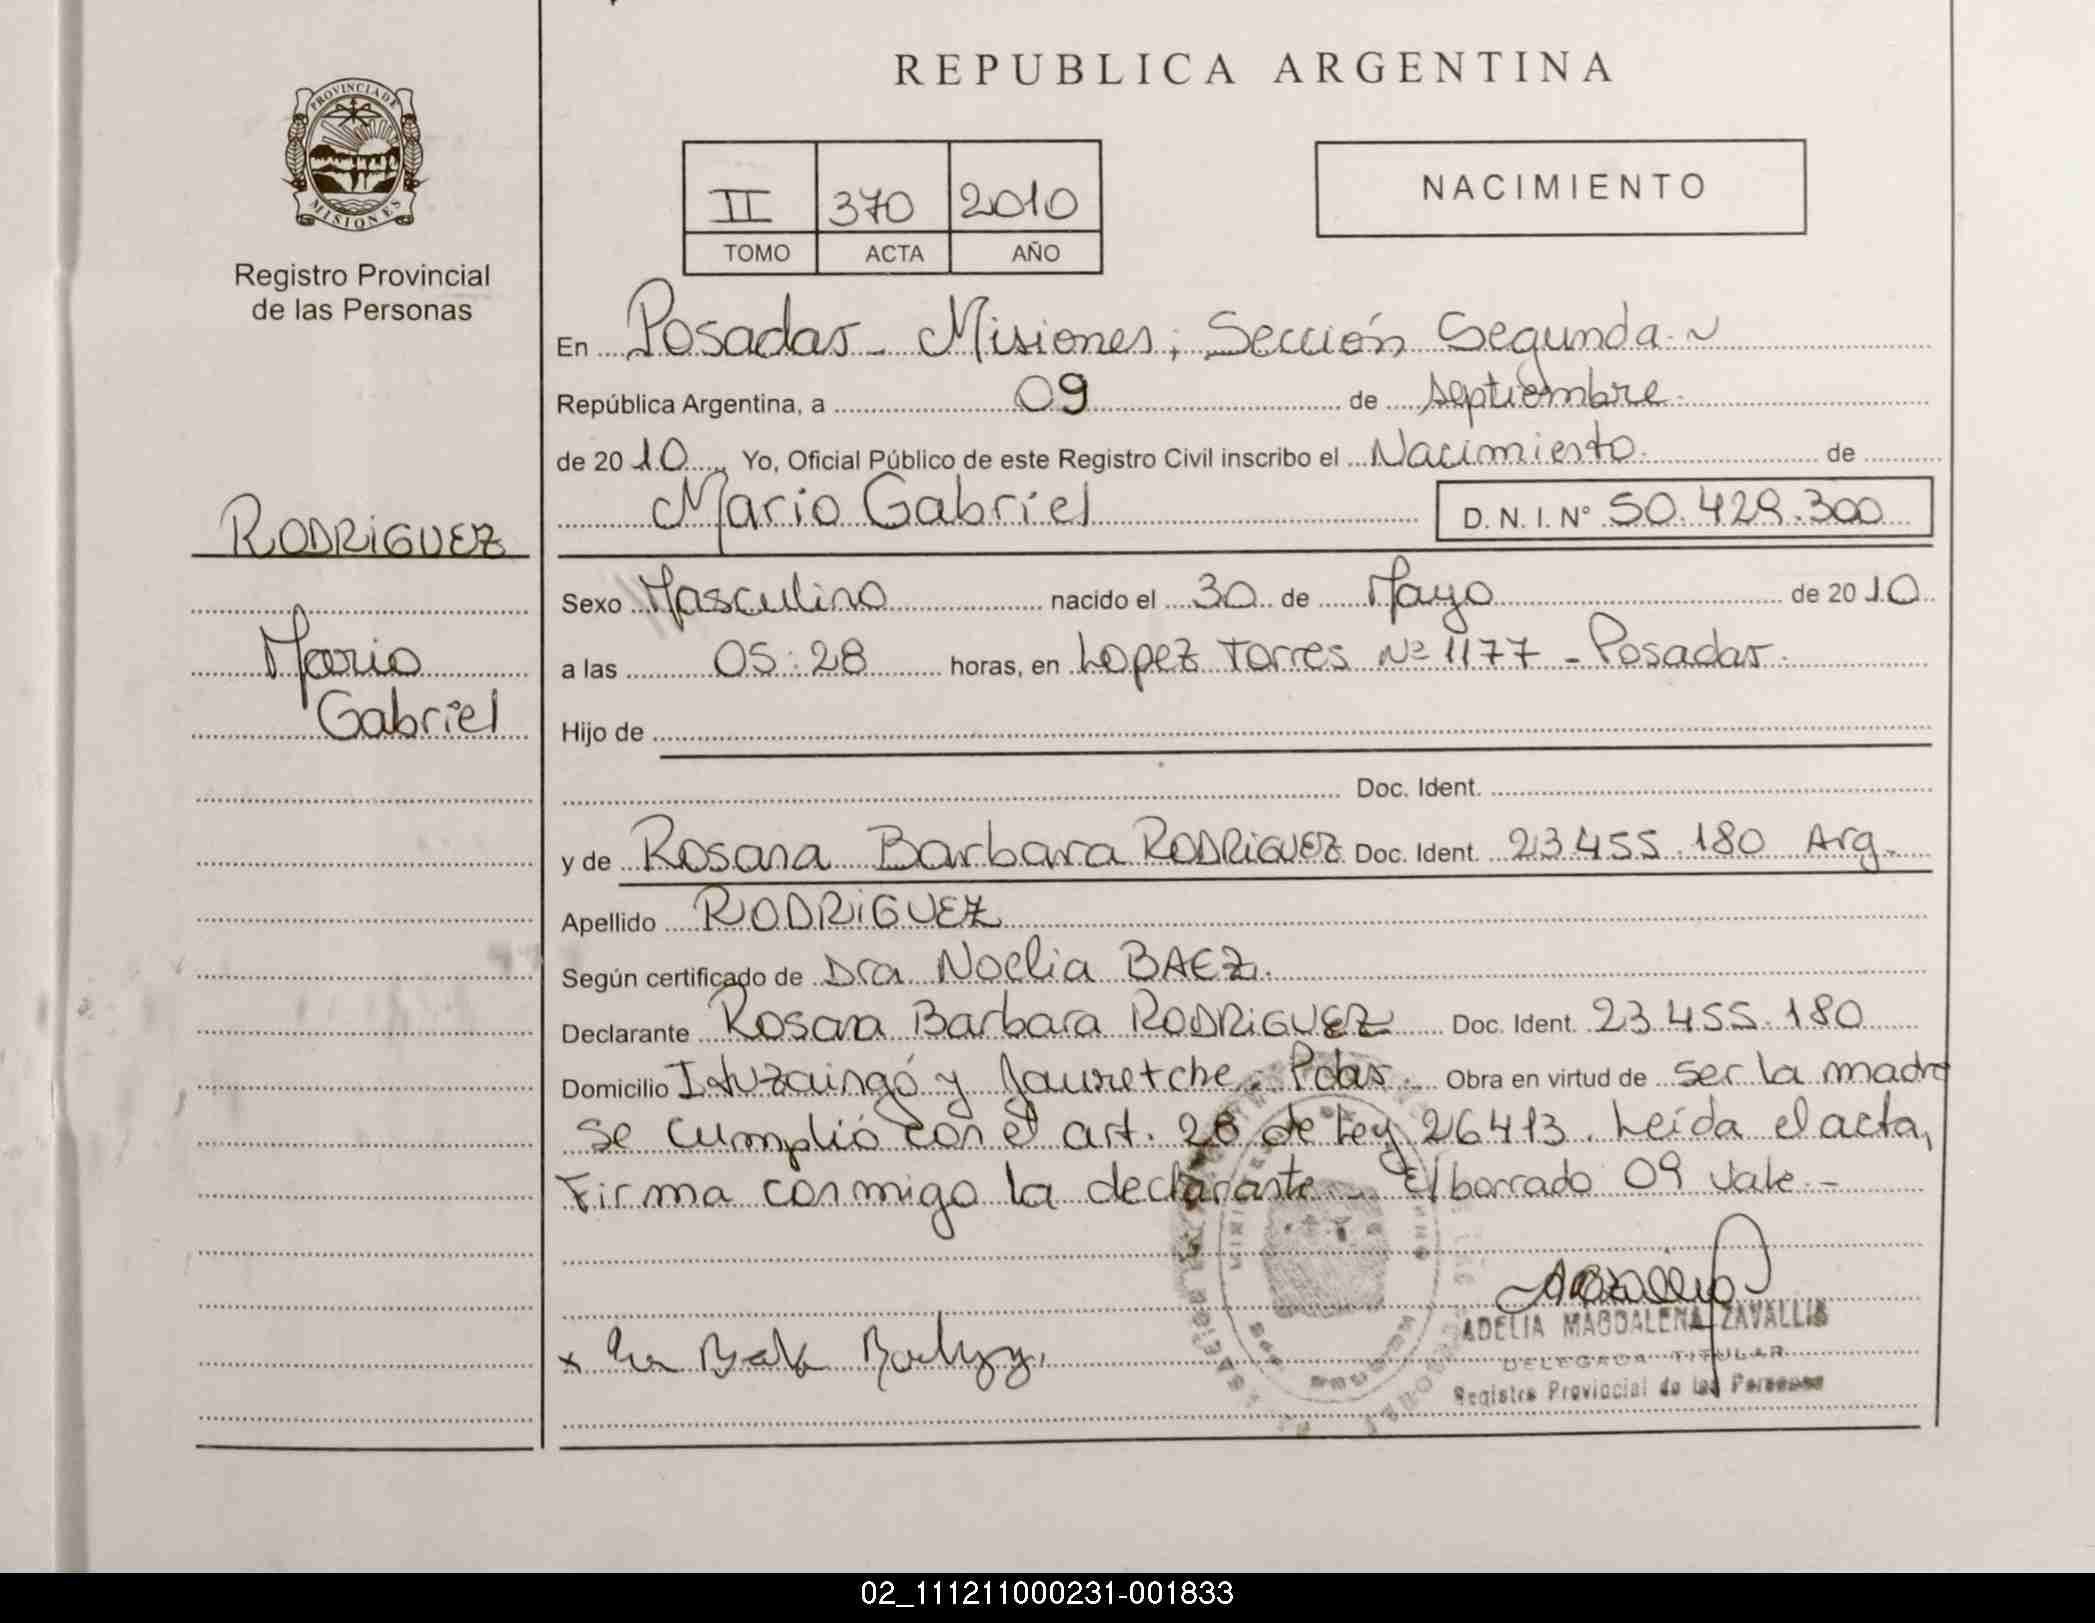 REPUBLICA ARGENTINA
PROVINCIA DE
MISIONES
Registro Provincial
de las Personas
II 370 2010
TOMO ACTA AÑO
NACIMIENTO
En Posadas - Misiones; Sección Segunda.~
República Argentina, a 09 de septiembre.
de 2010 Yo, Oficial Público de este Registro Civil inscribo el Nacimiento. de
Mario Gabriel D. N. I. N° 50.429.300
RODRIGUEZ
Mario
Gabriel
Sexo Masculino nacido el 30 de Mayo de 2010
a las 05:28 horas, en Lopez Torres Nº 1177 - Posadas.
Hijo de
Doc. Ident.
y de Rosana Barbara RODRIGUEZ Doc. Ident. 23.455.180 Arg.
Apellido RODRIGUEZ
Según certificado de Dra Noelia BAEZ.
Declarante Rosana Barbara RODRIGUEZ Doc. Ident. 23.455.180
Domicilio Ituzaingó y Jauretche. Pdas. Obra en virtud de ser la madre
se cumplió con el art. 28 de Ley 26413. Leída el acta,
Firma conmigo la declarante. El borrado 09 vale.-
ADELIA MAGDALENA ZAVALLIS
DELEGADA TITULAR
Registro Provincial de las Personas
02_111211000231-001833